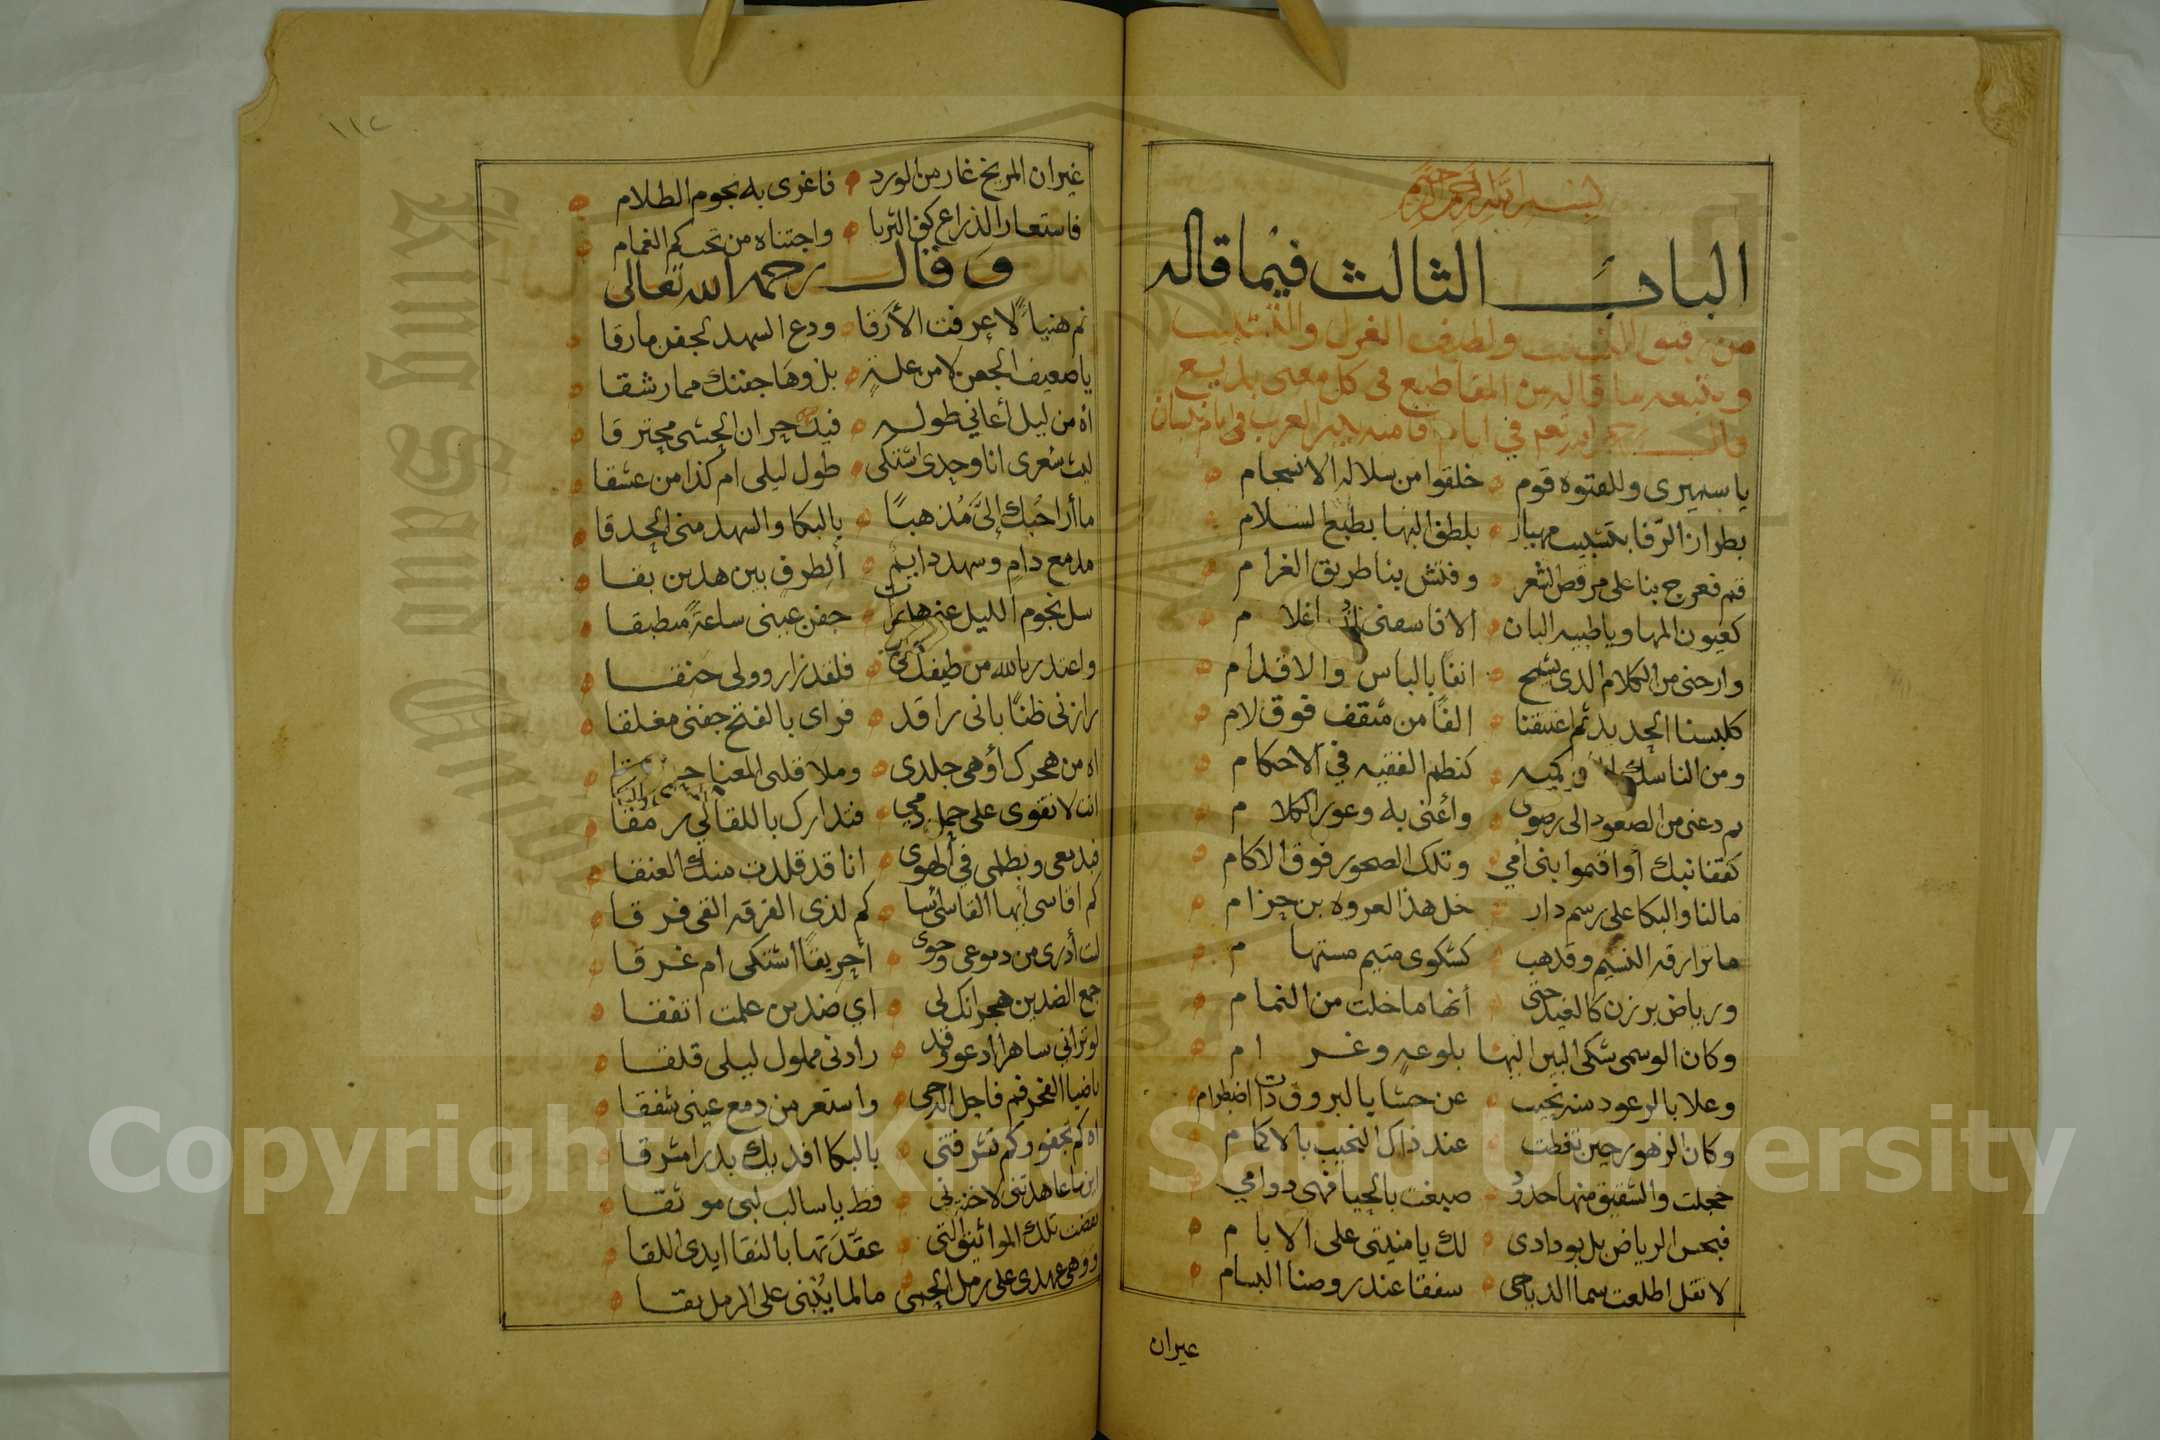 بسم الله الرحمن الرحيم
الباب الثالث فيما قاله
من رقيق النسيب ولطيف الغزل والتشبيب
ويتبعه ما قاله من المقاطيع في كل معنى بديع
يا سميري وللفتوه قوم خلقوا من سلاله الانسجام
بطراز الرفا بتشبيب مهيار بلطف البها بطبع السلام
قم فعرج بنا على مرقص الشعر وفتش بنا طريق الغرام
كعيون المها ويا ظبيه البان الا فاسقنى
وارحنى من الكلام الذى انفا بالباس والاقدام
كلبسنا الحديد ثم اعتنقنا الفا من مثقف فوق لام
ومن الناسك كنظم الفقيه في الاحكام
ثم دعنى من الصعود الى رضوى واعنى به وعور الكلام
كقفا نبك أو اقيموا بنى أمي وتلك الصخور فوق الاكام
مالنا والبكا على رسم دار خل هذا لعروه بن حزام
ما ترا رقه النسيم وقد هب كشكوى متيم مستهام
ورياض برزن كالغيد حتى أنها ما خلت من النمام
وكان الوسمى شكى البين اليها بلوعه وغرام
وعلا بالرعود منه نحيب عن حشا بالبروق ذات اضطرام
وكان الزهور حين تغطت عند ذاك النحيب بالاكمام
خجلت والشقيق منها خدود صبغت بالحيا فهى دوامي
فبحس الرياض بل بودادى لك يا منيتى على الايام
لا تقل اطلعت سما الدياجى سفقا عند روضنا البسام
عيران
١١٢
غير ان المريخ غار من الورد فاغرى به نجوم الظلام
فاستعار الذراع كف الثريا واجتناه من تحت كم الغمام
وقال رحمه الله تعالى
نم هنيا لا عرفت الأرقا ودع السهد لجفن ما رقا
يا ضعيف الجفن لا من علة بل وها جفنك مما رشقا
اه من ليل أعاني طوله فيك حران الحشى محترقا
ليت شعرى انا وحدى اشتكى طول ليلى ام كذا من عشقا
ما أرا حبك إلىّ مذهبا بالبكا والسهد منى الحدقا
مدمع دام وسهد دايم ألطرف بين هذين بقا
سل نجوم الليل عنه هل رات جفن عينى ساعة منطبقا
واعتذر بالله من طيفك لي فلقد زار وولى حنقا
زارنى ظنا بانى راقد فراى بالفتح جفنى مغلقا
اه من هجرك أوهى جلدى وملا قلبى المعنا
انت لا تقوى على حمل دمي فتدارك باللقا لي رمقا
انا قد قلدت منك العنقا
كم اقاسى ايها القاسى أسا كم لذى الفرقه القى فرقا
لست أدرى من دموعى وجوى أحريقا اشتكى ام غرقا
جمع الضدين هجرانك لى اي ضدين علمت اتفقا
لو ترانى ساهرا ادعو وقد زادنى مملول ليلى قلقا
يا ضيا الفجر قم فاجل الدجى واستعر من دمع عينى شفقا
اه كم تجفو وكم تشرقنى بالبكا افديك بدرا مشرقا
اين ما عاهدتنى لا خنتنى قط يا سالب لبى موثقا
نقضت تلك المواثيق التى عقدتها بالنقا ايدى اللقا
ووهى عهدى على رمل الحمى ما لما يبنى على الرمل بقا
Copyright © King Saud University